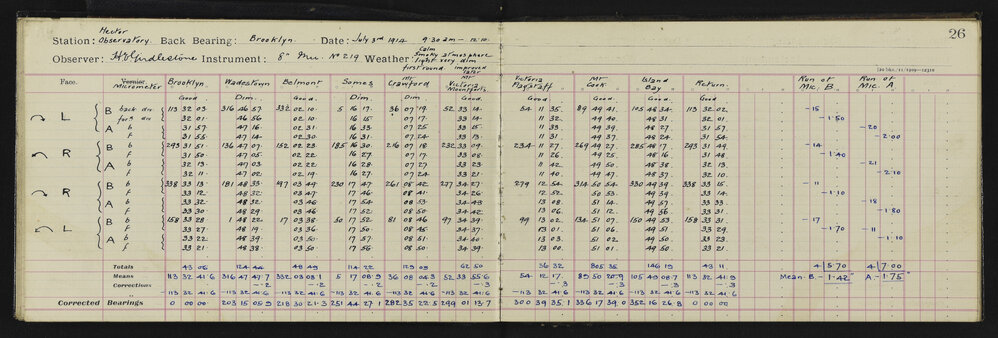 26
Hector
Station: Observatory. Back Bearing: Brooklyn. Date: July 3rd 1914 9.30 am - 12.10.
Calm
Smoky atmosphere
Observer: H E Girdlestone Instrument: 8" Mic. No 219 Weather: light very dim
first round improved
later
Face. Vernier Micrometer Brooklyn Wadestown Belmont Somes Mt Crawford Mt Victoria Victoria Flagstaff Mt Cook Island Bay Return. Run of Mic. B. Run of Mic. A
Good Dim. Good. Dim. Good. Good. Good. Good. Good. Good.
L B back div 113 32 03 316 46 57 332 02 10 5 16 17 36 07 19 52 33 14 54 11 35 89 49 41 105 48 34 113 32 02 -15
for'd div 32 01 46 56 02 10 16 15 07 17 33 14 11 32 49 40 48 31 32 01 -1.50
A b 31 57 47 16 02 31 16 33 07 25 33 15 11 33 49 39 48 27 31 57 -20
f 31 55 47 14 02 30 16 31 07 24 33 13 11 31 49 37 48 24 31 54 -2.00
R B b 293 31 51 136 47 07 152 02 23 185 16 30 216 07 18 232 33 09 234 11 27 269 49 27 285 48 17 293 31 49 -14
f 31 50 47 05 02 22 16 27 07 17 33 08 11 26 49 25 48 16 31 48 -1.40
A b 32 13 47 03 02 22 16 28 07 27 33 23 11 42 49 50 48 38 32 13 -21
f 32 11 47 02 02 19 16 27 07 24 33 21 11 40 49 47 48 37 32 10 -2.10
R B b 338 33 13 181 48 33 197 03 49 230 17 47 261 08 42 277 34 27 279 12 54 314 50 54 330 49 39 338 33 15 -11
f 33 12 48 32 03 47 17 46 08 41 34 26 12 52 50 53 49 39 33 14 -1.10
A b 33 32 48 32 03 46 17 54 08 53 34 43 13 08 51 14 49 57 33 33 -18
f 33 30 48 29 03 46 17 52 08 50 34 42 13 06 51 12 49 56 33 31 -1.80
L B b 158 33 28 1 48 22 17 03 38 50 17 52 81 08 46 97 34 39 99 13 02 134 51 07 150 49 53 158 33 31 -17
f 33 27 48 19 03 36 17 50 08 45 34 37 13 01 51 06 49 51 33 29 -1.70
A b 33 22 48 39 03 50 17 57 08 51 34 40 13 03 51 02 49 50 33 23 -11
f 33 21 48 38 03 50 17 56 08 50 34 39 13 00 51 01 49 50 33 21 -1.10
Totals 43 06 124 44 48 49 114 22 62 50 36 32 805 35 146 19 43 11 4 5.70 4 7.00
Means 113 32 41.6 316 47 47.7 332 03 03.1 5 17 08.9 36 08 04.3 52 33 55.6 54 12 17. 89 50 20.9 105 49 08.7 113 32 41.9 Mean B. -1.42" A. -1.75"
Corrections -.2 -.2 -.2 -.3 -.3 -.3 -.3
-113 32 41.6 -113 32 41.6 -113 32 41.6 -113 32 41.6 -113 32 41.6 -113 32 41.6 -113 32 41.6 -113 32 41.6 -113 32 41.6 -113 32 41.6
Corrected Bearings 0 00 00 203 15 05.9 218 30 21.3 251 44 27.1 282 35 22.5 299 01 13.7 300 39 35.1 336 17 39.0 352 16 26.8 0 00 00